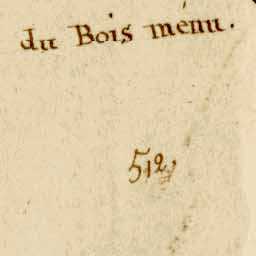 du Bois ménu.
512,